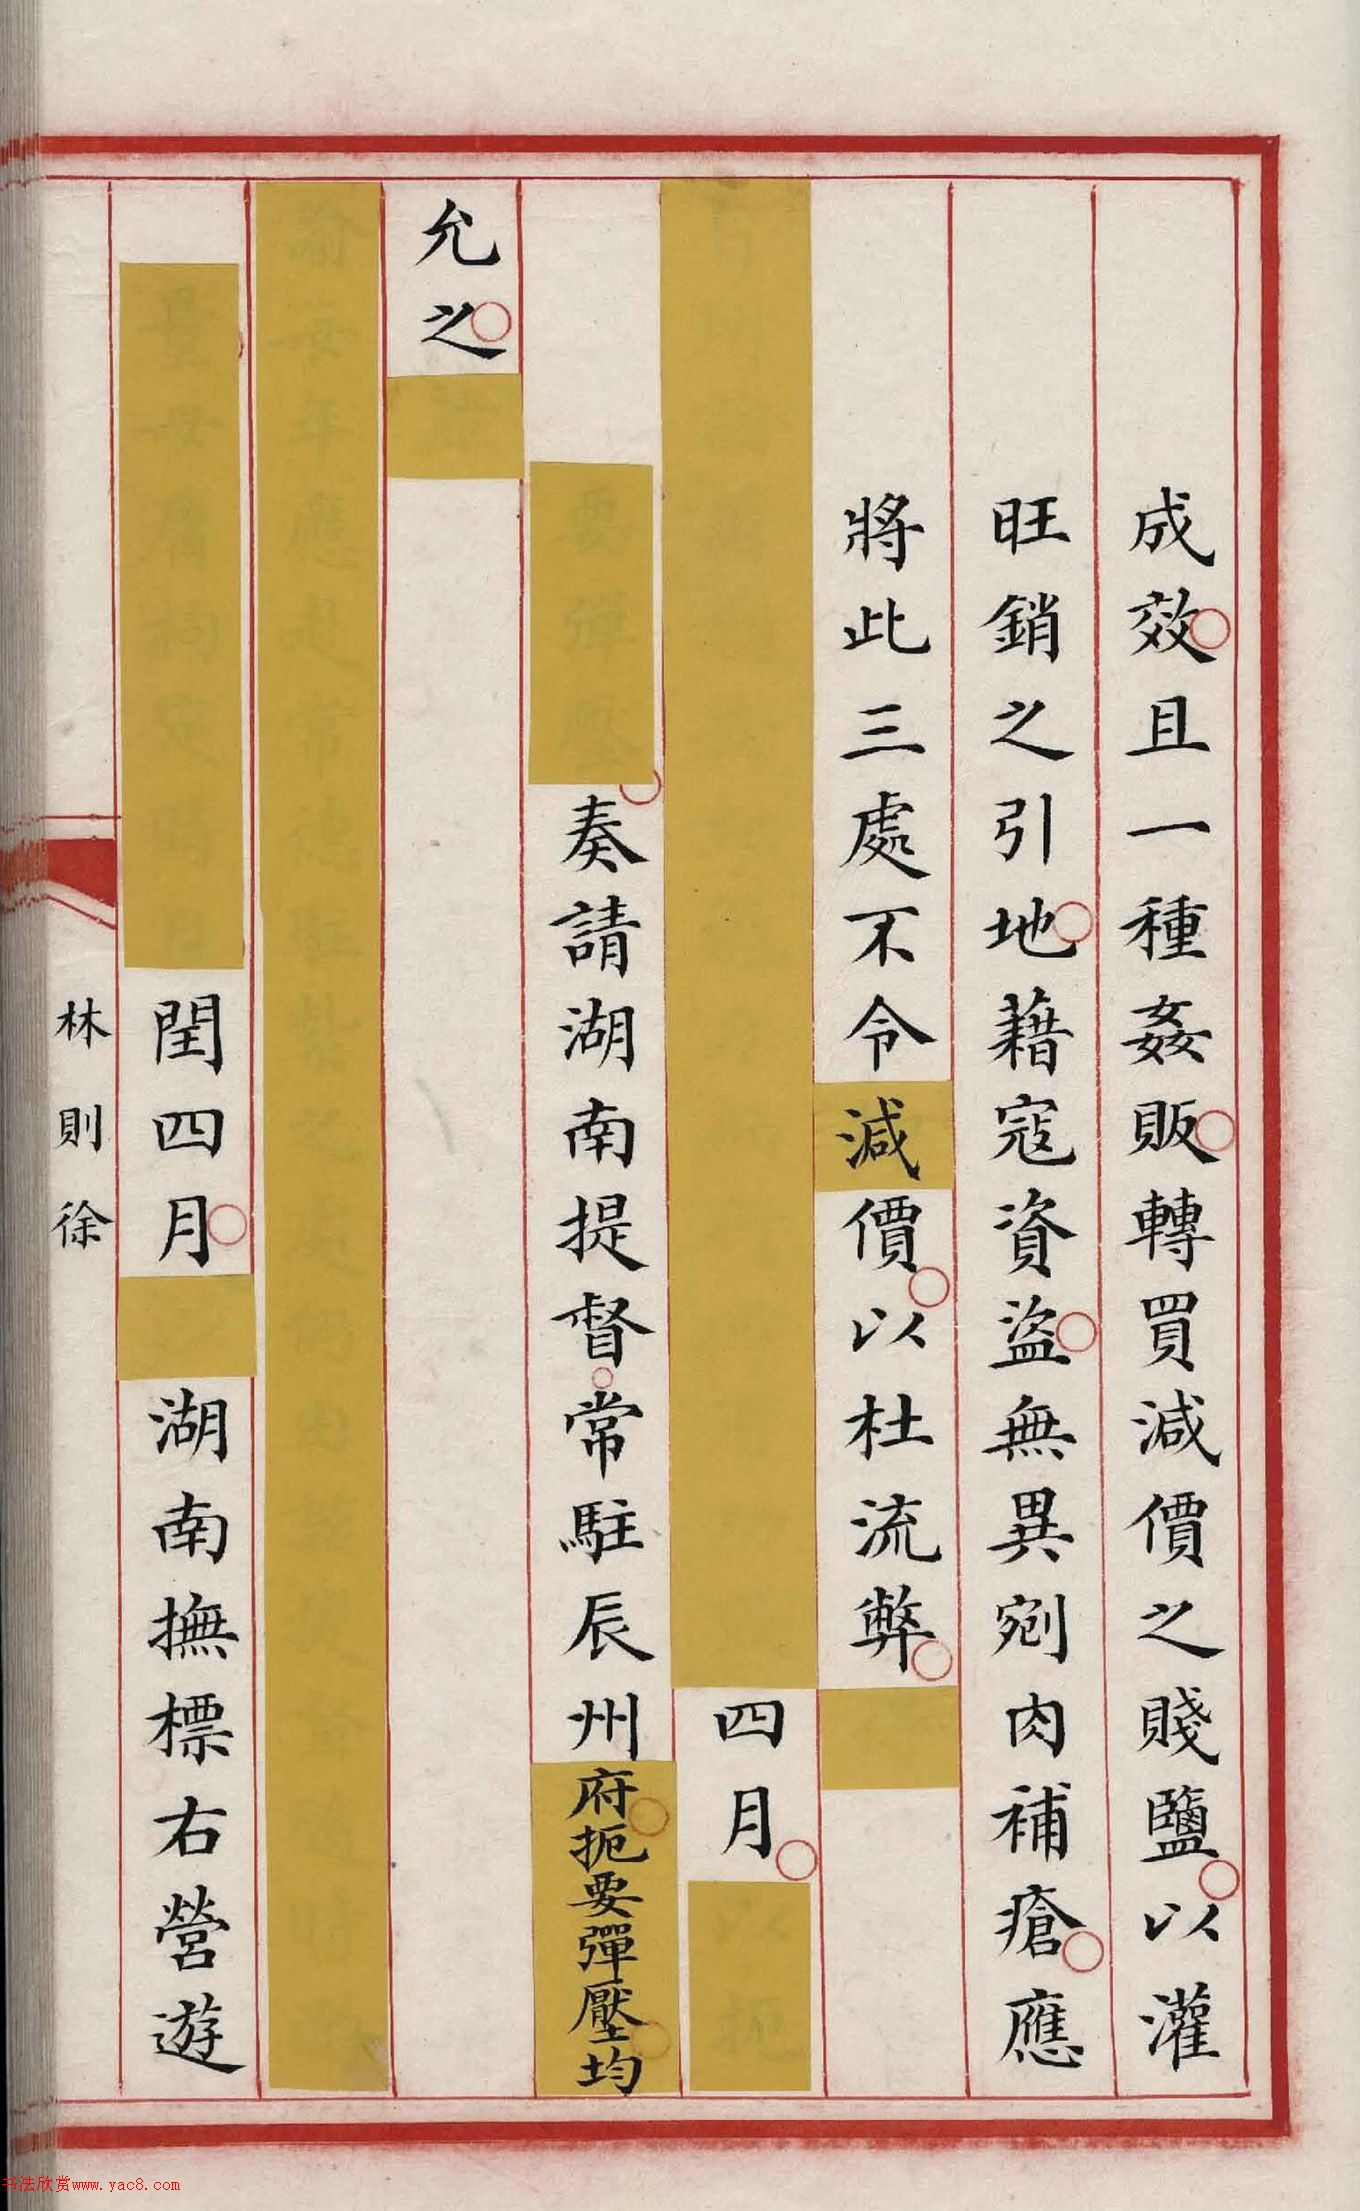 成效且一種姦販轉買減價之賤鹽以灌
旺銷之引地藉寇資盜無異剜肉補瘡應
將此三處不令減價以杜流弊
四月
奏請湖南提督常駐辰州府扼要彈壓均
允之
閏四月湖南撫標右營遊
林則徐
书法欣赏www.yac8.com